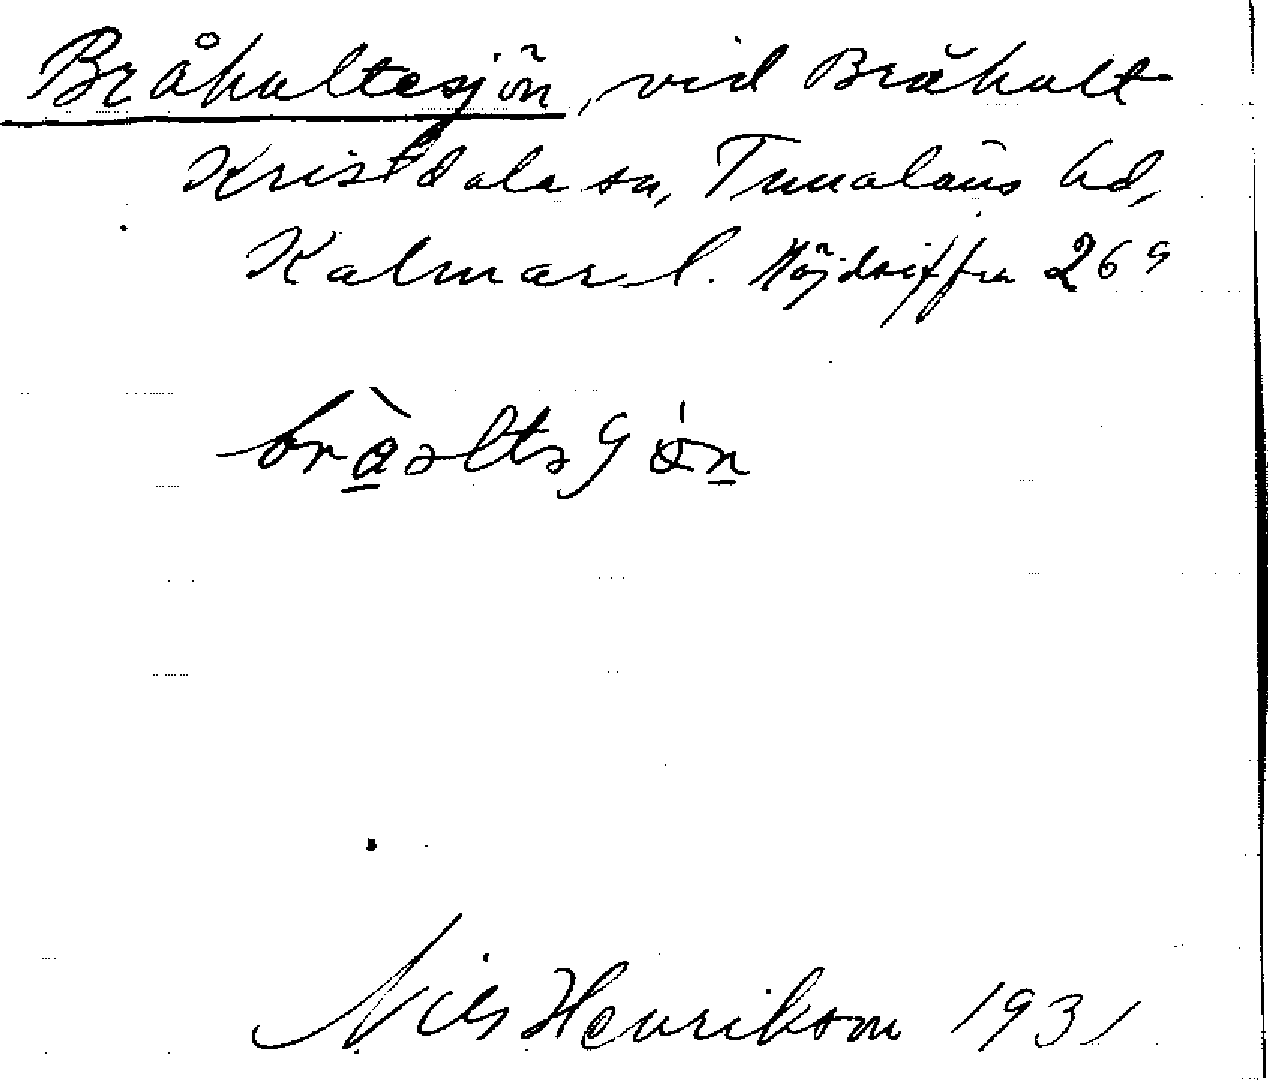 Bråhultesjön, vid Bråhult
Kristdala sn, Tunaläns hd,
Kalmar l. Höjdsiffra 269
Nils Henrikson 1931